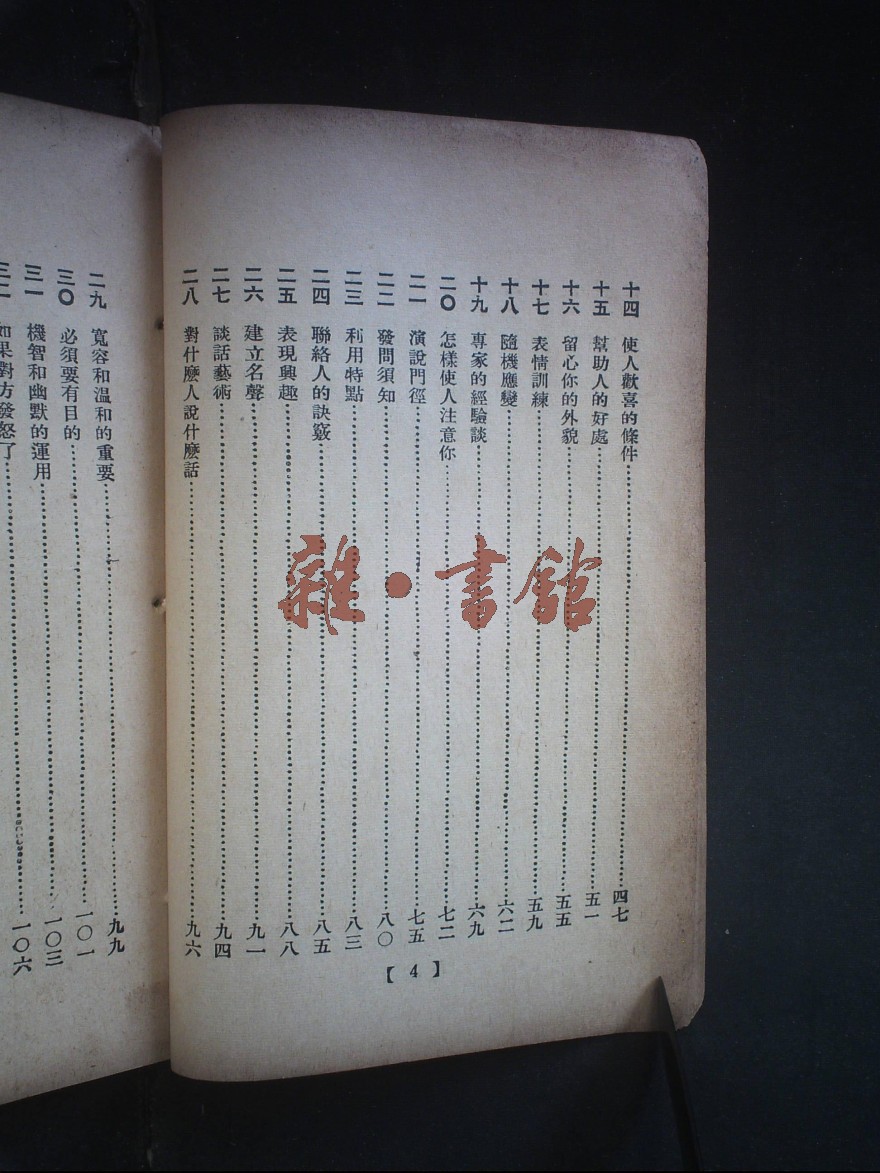 十四 使人歡喜的條件 四七
十五 幫助人的好處 五一
十六 留心你的外貌 五五
十七 表情訓練 五九
十八 隨機應變 六二
十九 專家的經驗談 六九
二〇 怎樣使人注意你 七二
二一 演說門徑 七五
二二 發問須知 八〇
二三 利用特點 八三
二四 聯絡人的訣竅 八五
二五 表現興趣 八八
二六 建立名聲 九一
二七 談話藝術 九四
二八 對什麽人說什麽話 九六
【4】
二九 寬容和溫和的重要 九九
三〇 必須要有目的 一〇一
三一 機智和幽默的運用 一〇三
三二 如果對方發怒了 一〇六
雜·書館